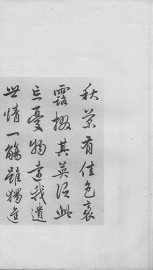 秋菊有佳色裛
露掇其英汎此
忘憂物遠我遺
世情一觴雖獨進